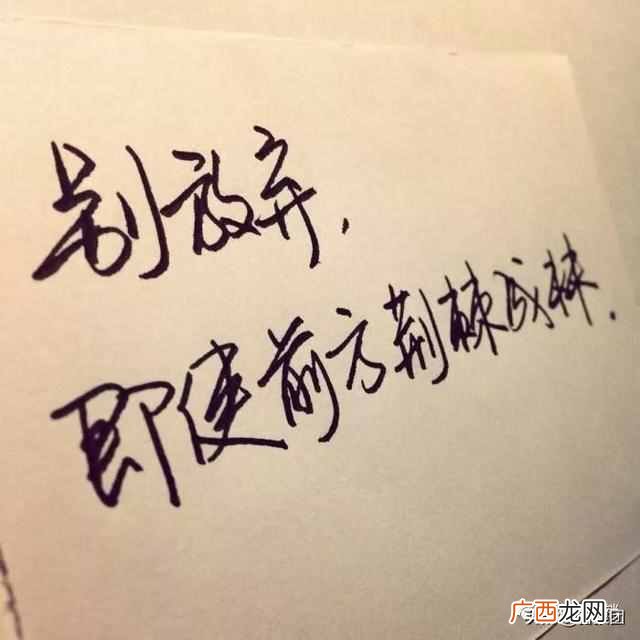 别放弃.
即使前方荆棘成林.
广西龙网